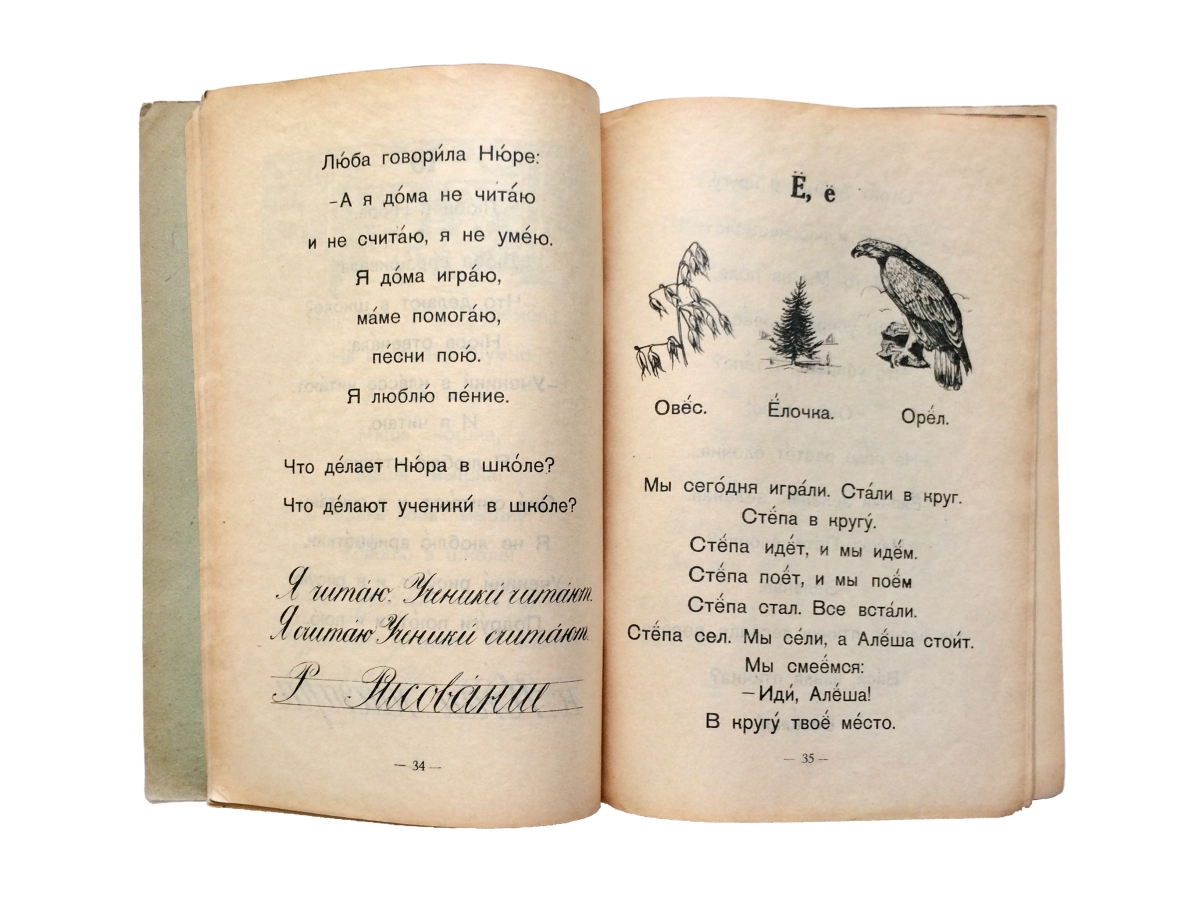 Лю́ба говори́ла Ню́ре:
–А я до́ма не чита́ю
и не счита́ю, я не уме́ю.
Я до́ма игра́ю,
ма́ме помога́ю,
пе́сни пою́.
Я люблю́ пе́ние.
Что де́лает Ню́ра в шко́ле?
Что де́лают ученики́ в шко́ле?
Я чита́ю. Ученики́ чита́ют.
Я счита́ю Ученики́ счита́ют.
Р Рисова́ние
— 34 —
Ё, ё
Ове́̈с. Ё́лочка. Орё́л.
Мы сего́дня игра́ли. Ста́ли в круг.
Стё́па в кругу́.
Стё́па идё́т, и мы идё́м.
Стё́па поё́т, и мы поё́м
Стё́па стал. Все вста́ли.
Стё́па сел. Мы се́ли, а Алё́ша стои́т.
Мы смеё́мся:
–Иди́, Алё́ша!
В кругу́ твоё́ ме́сто.
— 35 —